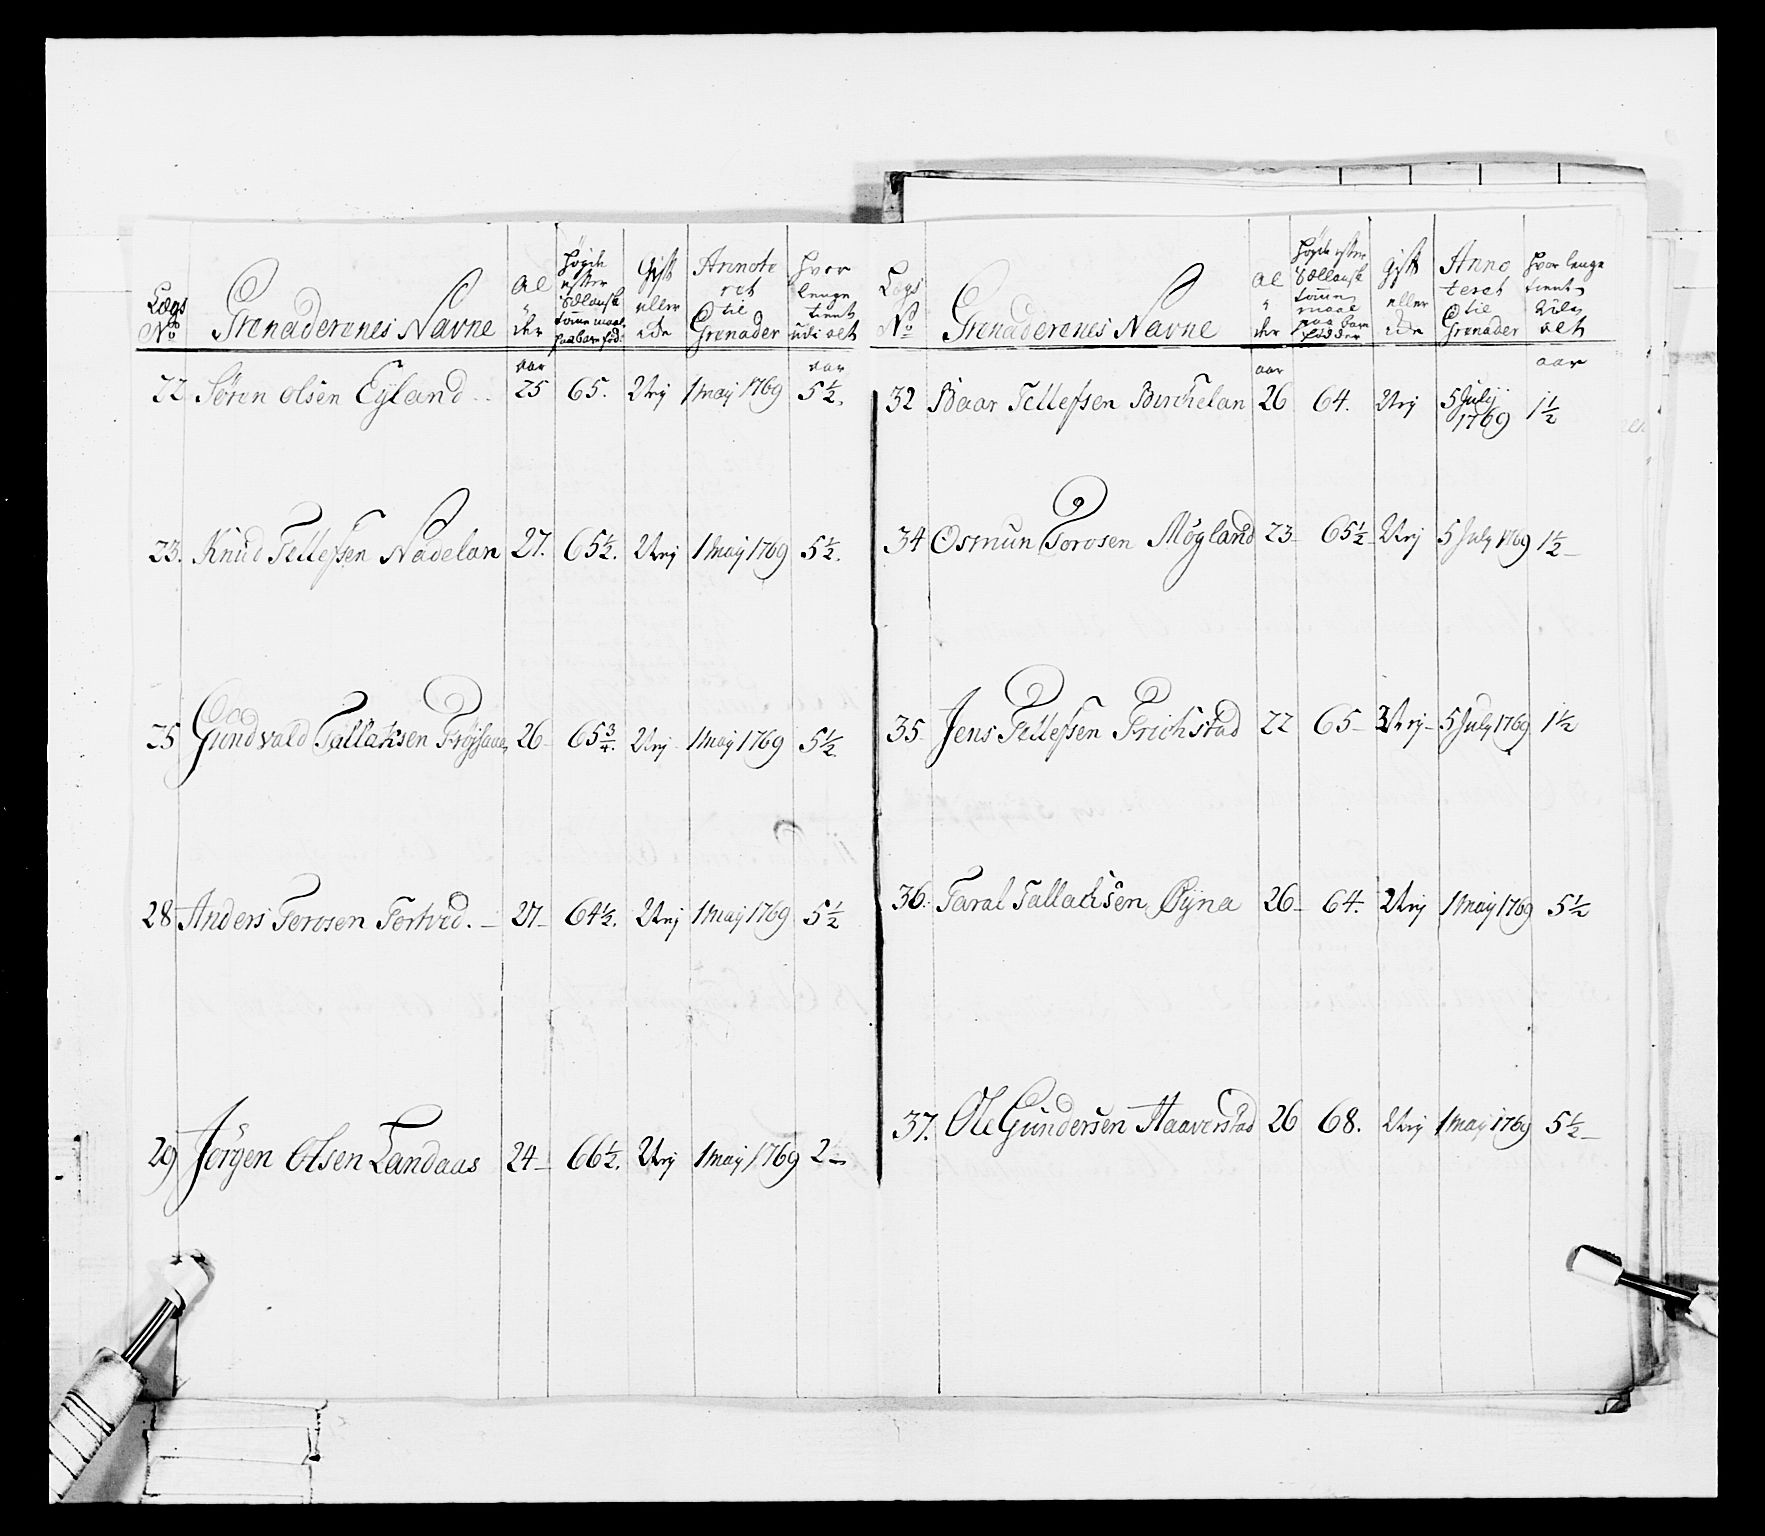 Lægs No Grenaderenes Navne Al der Høyde efter Siælansk tomme maal paa bare fød: Gift eller Ede Annote ret til Grenader Hvor lenge tient udi alt
aar aar
22 Sören Olsen Eyland 25 65. Ung 1 may 1769 5½.
23. Knud Tellefsen Nadelan 27. 65½. Ung 1 May 1769 5½.
25 Gundvald Tallaksen 26 65¾. Ung 1 May 1769 5½.
28 Anders Torosen Tortved. 27 64½. Ung 1 May 1769 5½
29 Jörgen Olsen Landaas 24 66½. Ung 1 may 1769 2
Lægs No Grenaderenes Navne Al der Høyde efter Siællansk tomme maal paa bare fødder Gift eller Ede Anno teret til Grenader Hvor lenge tient udi alt
aar aar
32 Baar Tellefsen Birchelan 26 64. Ung 5 July 1769 1½
34 Osmun Torosen Mögland 23 65½ Ung 5 July 1769 1½
35. Jens Tellefsen Frichstad 22 65 Ung 5 July 1769 1½
36. Taral Talladsen Øyna 26 64. Ung 1 May 1769 5½
37. Ole Gundersen Haaverstad 26 68. Ung 1 May 1769 5½